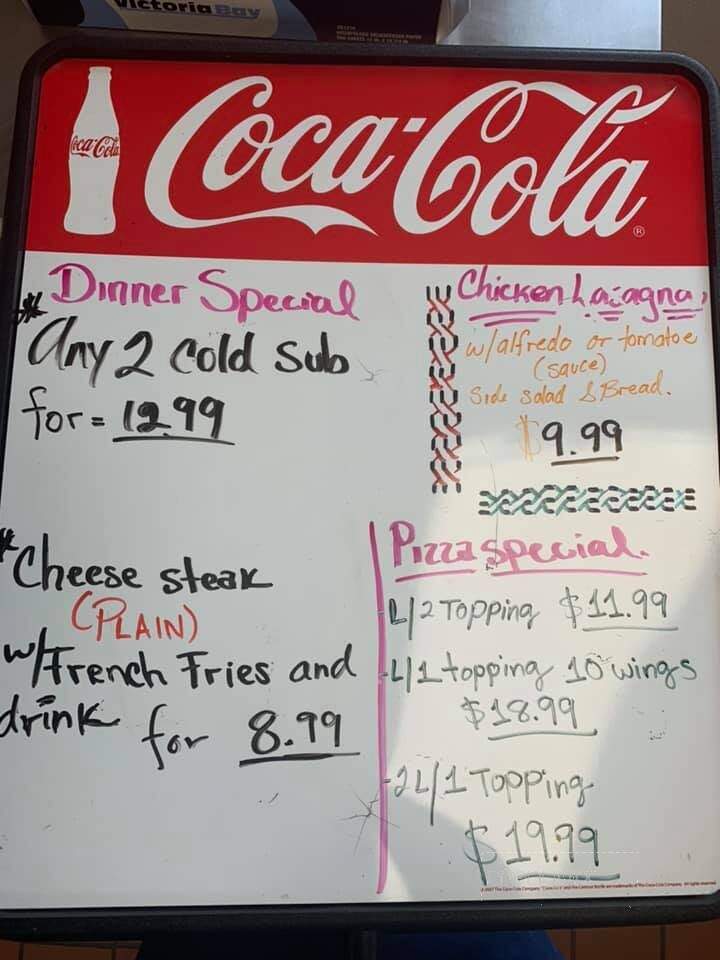 Victoria Bay
Coca-Cola
Coca-Cola®
* Dinner Special
Any 2 Cold Sub
for = 12.99
Chicken Lasagna,
w/alfredo or tomatoe
(sauce)
Side salad & Bread.
$9.99
* Cheese steak
(PLAIN)
w/French Fries and
drink for 8.99
Pizza special.
L/2 Topping $11.99
-L/1 topping 10 wings
$18.99
-2L/1 Topping
$19.99